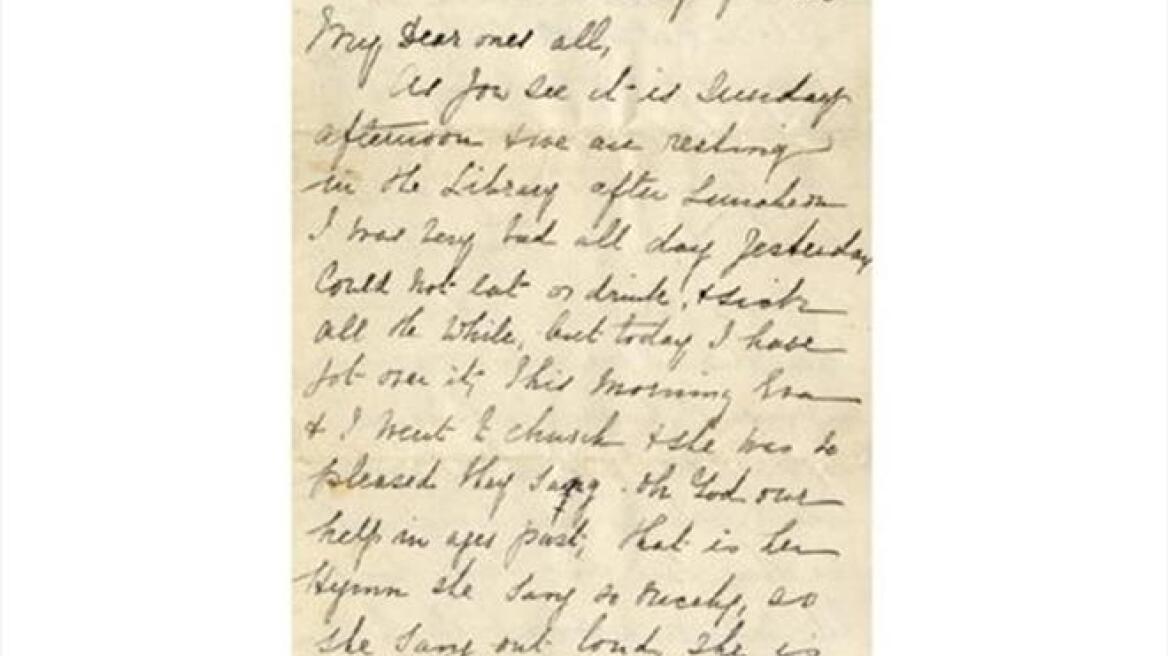 My Dear ones all,
As you see it is Sunday
afternoon & we are resting
in the Library after Luncheon
I was very bad all day Yesterday
Could not eat or drink, & sick
all the While, but today I have
got over it, This Morning Eva
& I went to church & she was so
pleased they sang Oh God our
help in ages past, that is her
Hymn she sang so nicely, so
she sang out loud she is